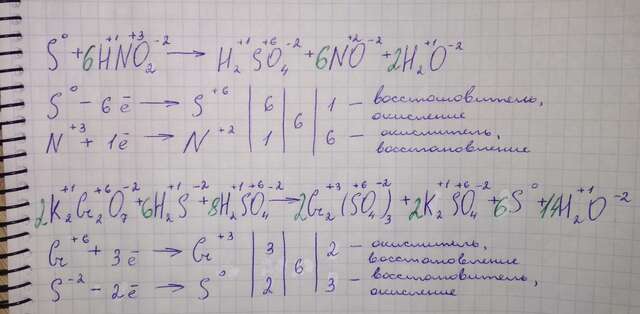 S⁰ + 6H⁺¹N⁺³O₂⁻² → H₂⁺¹S⁺⁶O₄⁻² + 6N⁺²O⁻² + 2H₂⁺¹O⁻²
S⁰ - 6e̅ → S⁺⁶ | 6 | 6 | 1 - восстановитель, окисление
N⁺³ + 1e̅ → N⁺² | 1 | | 6 - окислитель, восстановление
2K₂⁺¹Cr₂⁺⁶O₇⁻² + 6H₂⁺¹S⁻² + 8H₂⁺¹S⁺⁶O₄⁻² → 2Cr₂⁺³(S⁺⁶O₄⁻²)₃ + 2K₂⁺¹S⁺⁶O₄⁻² + 6S⁰ + 14H₂⁺¹O⁻²
Cr⁺⁶ + 3e̅ → Cr⁺³ | 3 | 6 | 2 - окислитель, восстановление
S⁻² - 2e̅ → S⁰ | 2 | | 3 - восстановитель, окисление